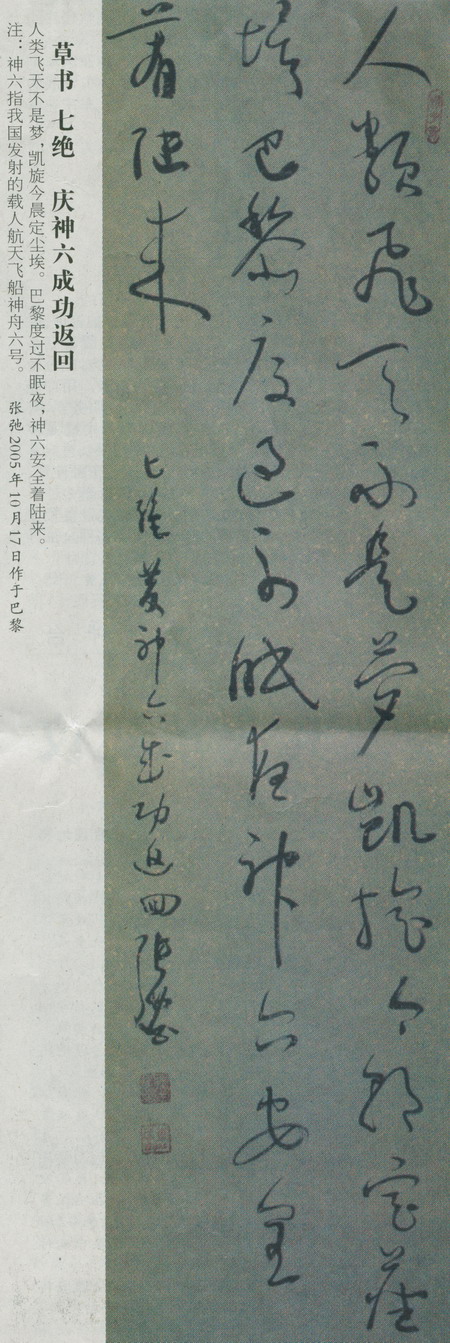 人類飛天不是夢凱旋今定塵
埃巴黎度過不眠夜神六安全
着陸来
七絶慶神六成功返回張弛
草书 七绝 庆神六成功返回
人类飞天不是梦，凯旋今晨定尘埃。巴黎度过不眠夜，神六安全着陆来。
注：神六指我国发射的载人航天飞船神舟六号。 张弛2005年10月17日作于巴黎